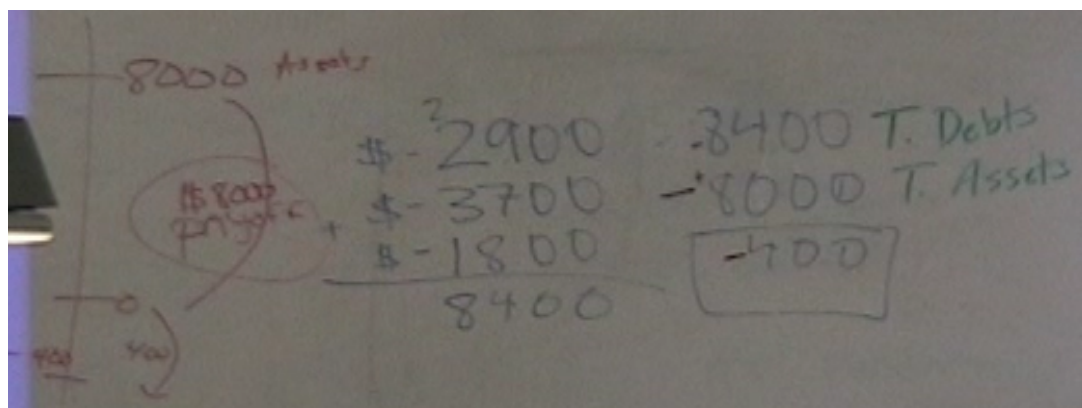 8000 Assets
$8000
0
400
400
2
$-2900
$-3700
+ $-1800
8400
-8400 T. Debts
-8000 T. Assets
-400